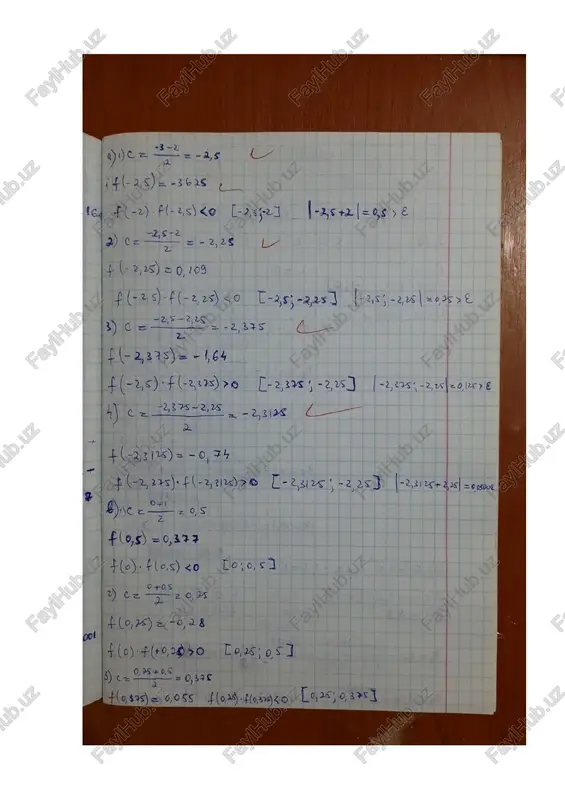 a) 1) c = (-3-2)/2 = -2,5
f(-2,5) = -3,625
f(-2) f(-2,5) < 0 [-2,5; -2] |-2,5+2| = 0,5 > ε
2) c = (-2,5-2)/2 = -2,25
f(-2,25) = 0,109
f(-2,5)·f(-2,25) < 0 [-2,5; -2,25] |-2,5; -2,25| = 0,25 > ε
3) c = (-2,5-2,25)/2 = -2,375
f(-2,375) = -1,64
f(-2,5)·f(-2,375) > 0 [-2,375; -2,25] |-2,375; -2,25| = 0,125 > ε
4) c = (-2,375-2,25)/2 = -2,3125
f(-2,3125) = -0,74
f(-2,375)·f(-2,3125) > 0 [-2,3125; -2,25] |-2,3125+2,25|
b) 1) c = (0+1)/2 = 0,5
f(0,5) = 0,377
f(0)·f(0,5) < 0 [0; 0,5]
2) c = (0+0,5)/2 = 0,25
f(0,25) = -0,28
f(0)·f(0,25) > 0 [0,25; 0,5]
3) c = (0,25+0,5)/2 = 0,375
f(0,375) = 0,055 f(0,25)·f(0,375) < 0 [0,25; 0,375]
FaylHub.uz